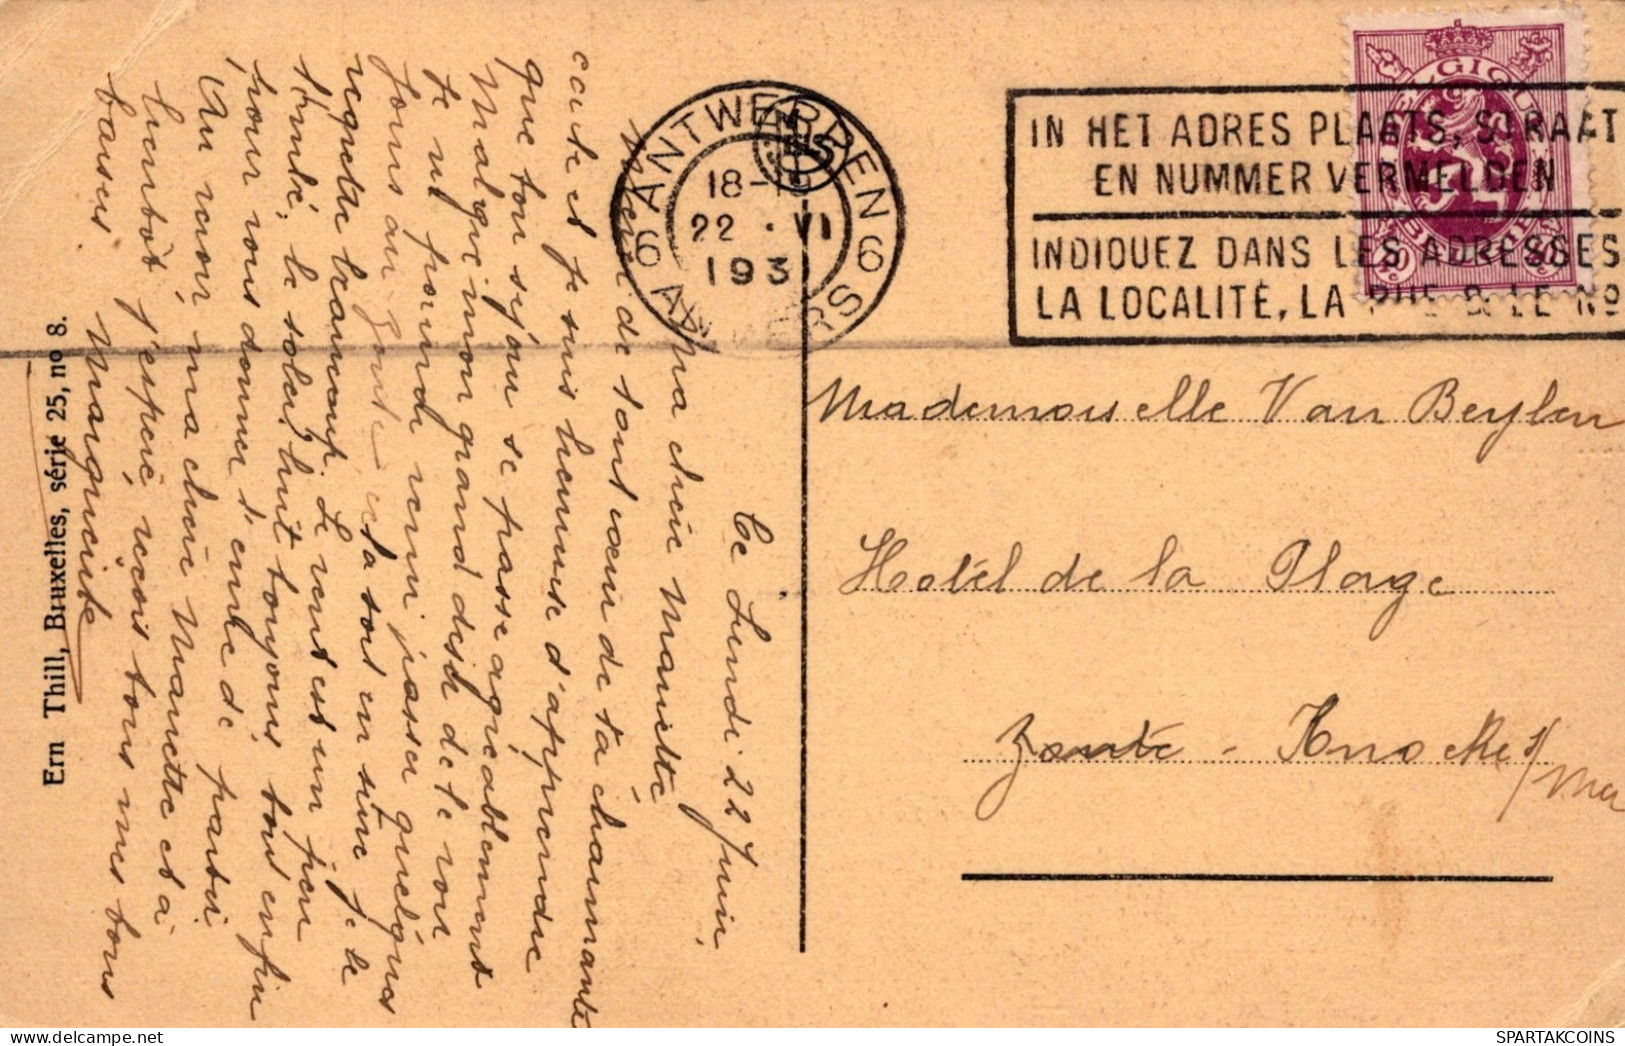 ANTWERPEN
6 6
18-19
22 · VI
193
ANVERS
IN HET ADRES PLAATS, STRAAT
EN NUMMER VERMELDEN
INDIQUEZ DANS LES ADRESSES
LA LOCALITÉ, LA RUE & LE No
BELGIQUE
BELGIË
40c 40c
Mademoiselle Van Beylen
Hotêl de la Plage
Zoute - Knocke s/
Mer
Ce Lundi 22 Juin,
Ma chère Manette
Merci de tout cœur de ta charmante
carte et je suis heureuse d'apprendre
que ton séjour se passe agréablement
Malgré mon grand désir de te voir
je ne pourrai venir passer quelques
jours au Zoute cela sois en sûre je le
regrette beaucoup. Le vent est un peu
tombé, le soleil luit toujours tout enfin
pour vous donner l'envie de partir
Au revoir, ma chère Manette et à
bientôt j'espère, reçois tous mes bons
baisers Marguerite
Ern Thill, Bruxelles, série 25, no 8.
SPARTAKCOINS